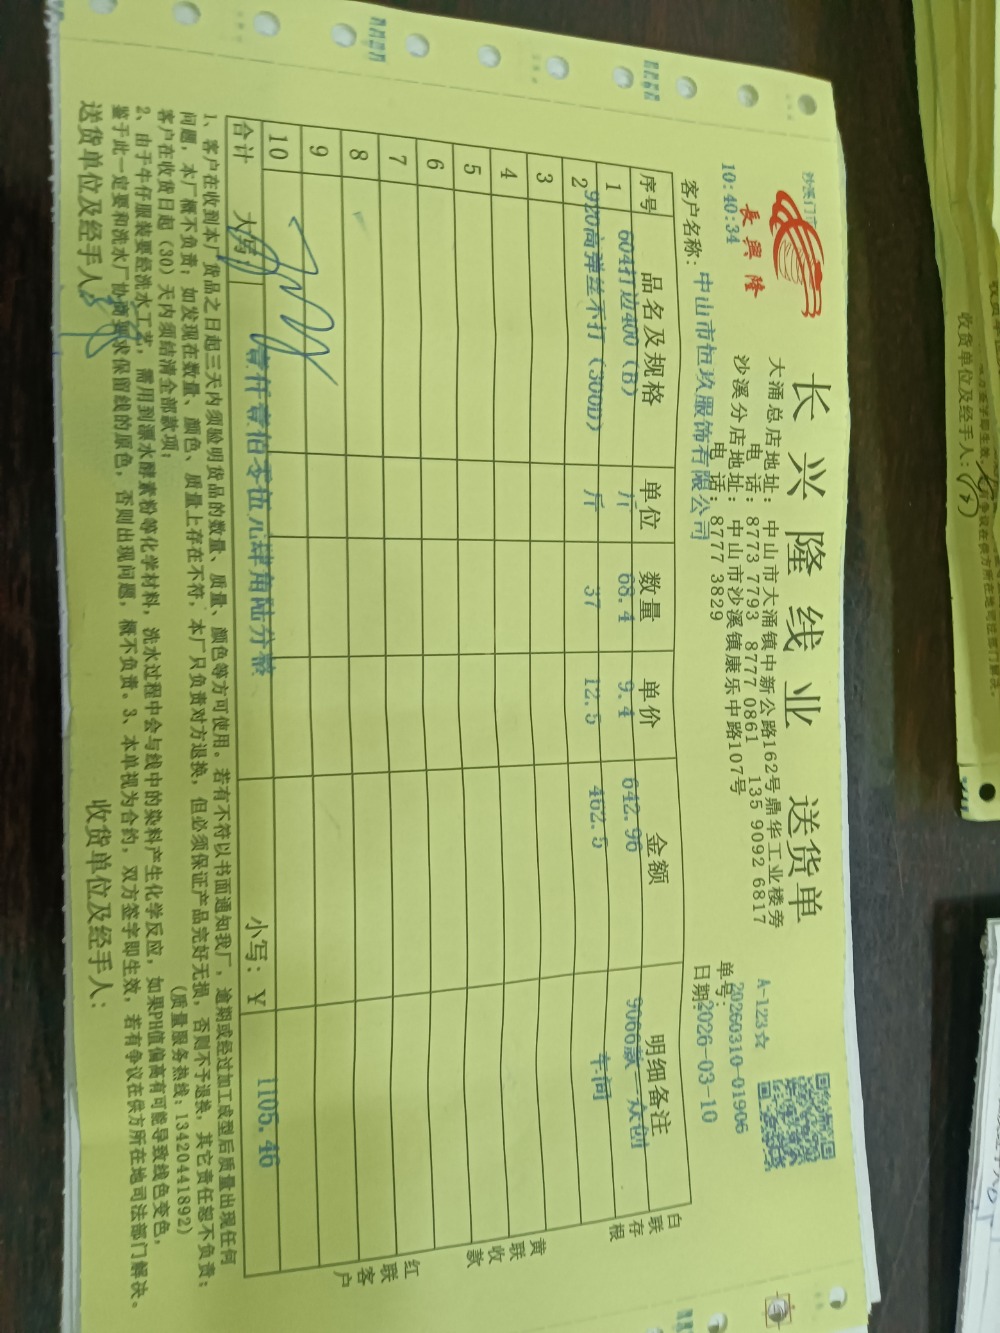 沙溪门市
10:40:34
長興隆
长兴隆线业 送货单
大涌总店地址: 中山市大涌镇中新公路162号鼎华工业楼旁
电 话: 8773 7793 8777 0861 135 9092 6817
沙溪分店地址: 中山市沙溪镇康乐中路107号
电 话: 8777 3829
A-123☆
单号: 20260310-01906
日期: 2026-03-10
客户名称: 中山市恒玖服饰有限公司
序号 品名及规格 单位 数量 单价 金额 明细备注
1 604打边400（B） 斤 68.4 9.4 642.96 9066款一众创
2 920高弹丝不打（300D） 斤 37 12.5 462.5 车间
3
4
5
6
7
8
9
10
合计 大写 壹仟壹佰零伍元肆角陆分整 小写: ¥ 1105.46
白联存根
黄联收款
红联客户
1、客户在收到本厂货品之日起三天内须验明货品的数量、质量、颜色等方可使用。若有不符以书面通知我厂，逾期或经过加工成型后质量出现任何
问题，本厂概不负责；如发现在数量、颜色、质量上存在不符，本厂只负责对方退换，但必须保证产品完好无损，否则不予退换，其它责任恕不负责；
客户在收货日起（30）天内须结清全部款项；
(质量服务热线: 13420441892)
2、由于牛仔服装要经洗水工艺，需用到漂水酵素粉等化学材料，洗水过程中会与线中的染料产生化学反应，如果PH值偏高有可能导致线色变色，
鉴于此一定要和洗水厂协商要求保留线的原色，否则出现问题，概不负责。3、本单视为合约，双方签字即生效，若有争议在供方所在地司法部门解决。
送货单位及经手人:
收货单位及经手人:
收货单位及经手人: